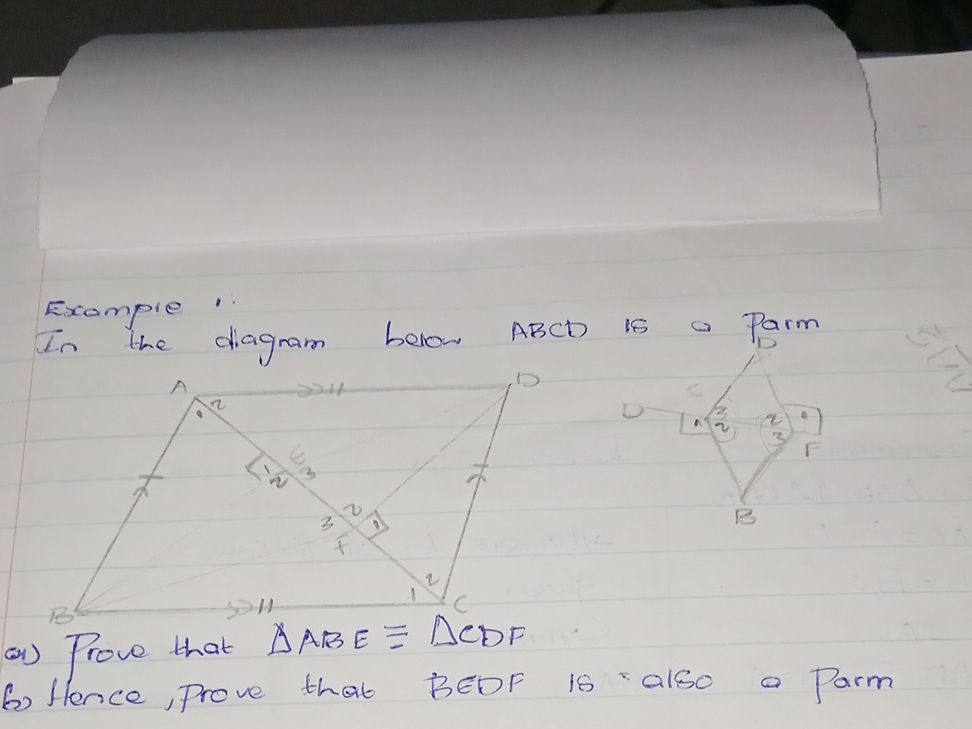 Example 1:
In the diagram below ABCD is a Parm
A
2
D
E
1
2
3
3
2
F
1
2
1
B
C
D
E
D
3
1
2
2
1
3
F
B
a) Prove that ΔABE ≡ ΔCDF
b) Hence, prove that BEDF is also a Parm